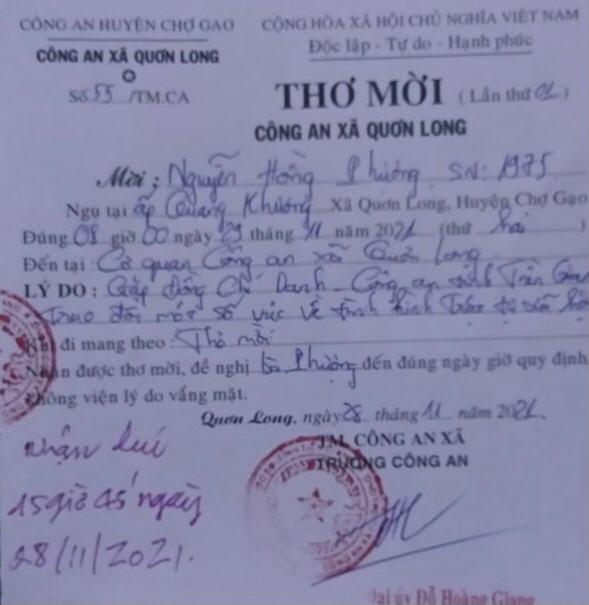 CÔNG AN HUYỆN CHỢ GẠO
CỘNG HÒA XÃ HỘI CHỦ NGHĨA VIỆT NAM
CÔNG AN XÃ QUƠN LONG
Độc lập - Tự do - Hạnh phúc
Số 55 /TM.CA
THƠ MỜI ( Lần thứ 01 )
CÔNG AN XÃ QUƠN LONG
Mời : Nguyễn Hồng Phượng SN: 1975
Ngụ tại ấp Quang Khương Xã Quơn Long, Huyện Chợ Gạo
Đúng 08 giờ 00 ngày 29 tháng 11 năm 2021 (thứ hai )
Đến tại : Cơ quan Công an xã Quơn Long
LÝ DO : Gặp Đồng Chí Danh - Công an tỉnh Tiền Giang
Trao đổi một số việc về tình hình Trật tự xã hội
Khi đi mang theo : Thơ mời
Nhận được thơ mời, đề nghị bà Phượng đến đúng ngày giờ quy định
không viện lý do vắng mặt.
Quơn Long, ngày 28 tháng 11 năm 2021
TM. CÔNG AN XÃ
TRƯỞNG CÔNG AN
nhận lúc
15 giờ 45' ngày
28/11/2021.
Đại úy Đỗ Hoàng Giang